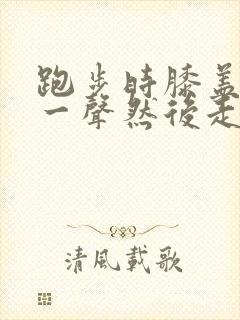 跑步時膝蓋
一聲然後走
清風載歌